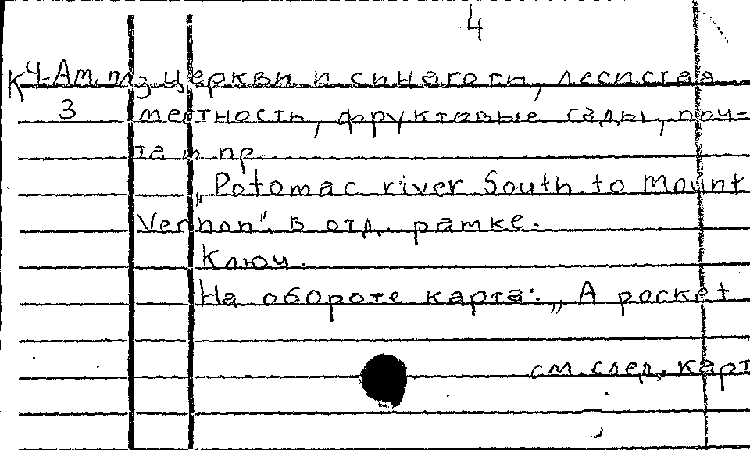 4
К4-Ам церкви и синагоги, лесистая
3 местность, фруктовые сады, поч-
та и пр.
„Potomac river South to Mount
Vernon“. В отд. рамке.
Ключ.
На обороте карта: „A pocket
см. след. карт